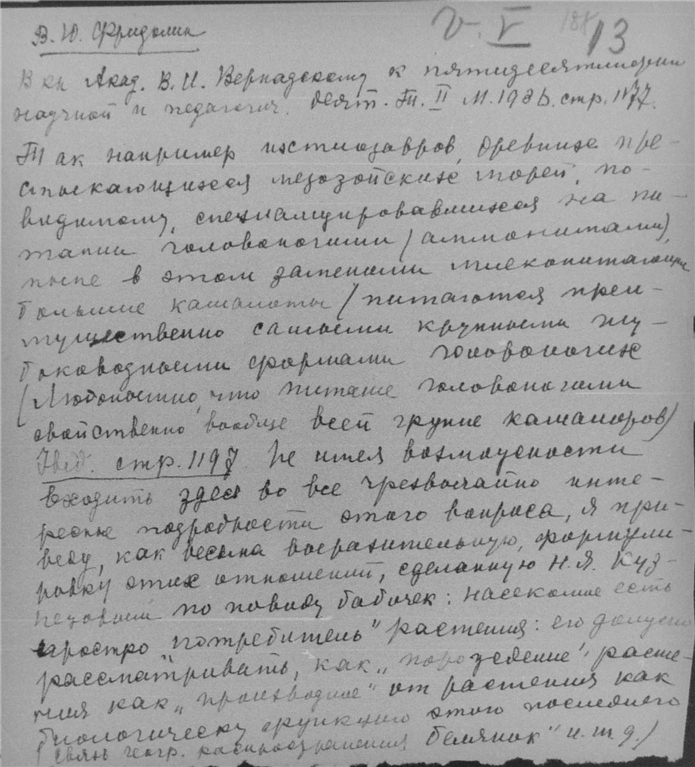 V. V 188 13
В. Ю. Фридолин
В кн Акад. В. И. Вернадскому к пятидесятилетию
научной и педагогич. деят. Т. II М. 1936. стр. 1177.
Так например ихтиозавров, древних пре-
смыкающихся мезозойских морей, по-
видимому, специализировавшихся на пи-
тании головоногими (аммонитами),
ныне в этом заменили млекопитающие
большие кашалоты (питаются преи-
мущественно самыми крупными глу-
боководными формами головоногих
(Любопытно, что питание головоногими
свойственно вообще всей группе кашалотов)
стр. 1197. Не имея возможности
входить здесь во все чрезвычайно инте-
ресные подробности этого вопроса, я при-
веду, как весьма выразительную, формули-
ровку этих отношений, сделанную Н. Я. Куз-
нецовым по поводу бабочек: насекомое есть
не просто „потребитель" растения: его должно
рассматривать, как „порождение" расте-
ния как „производное" от растения как
биологическую функцию этого последнего
(связь геогр. распространения белянок" и. т. д.)